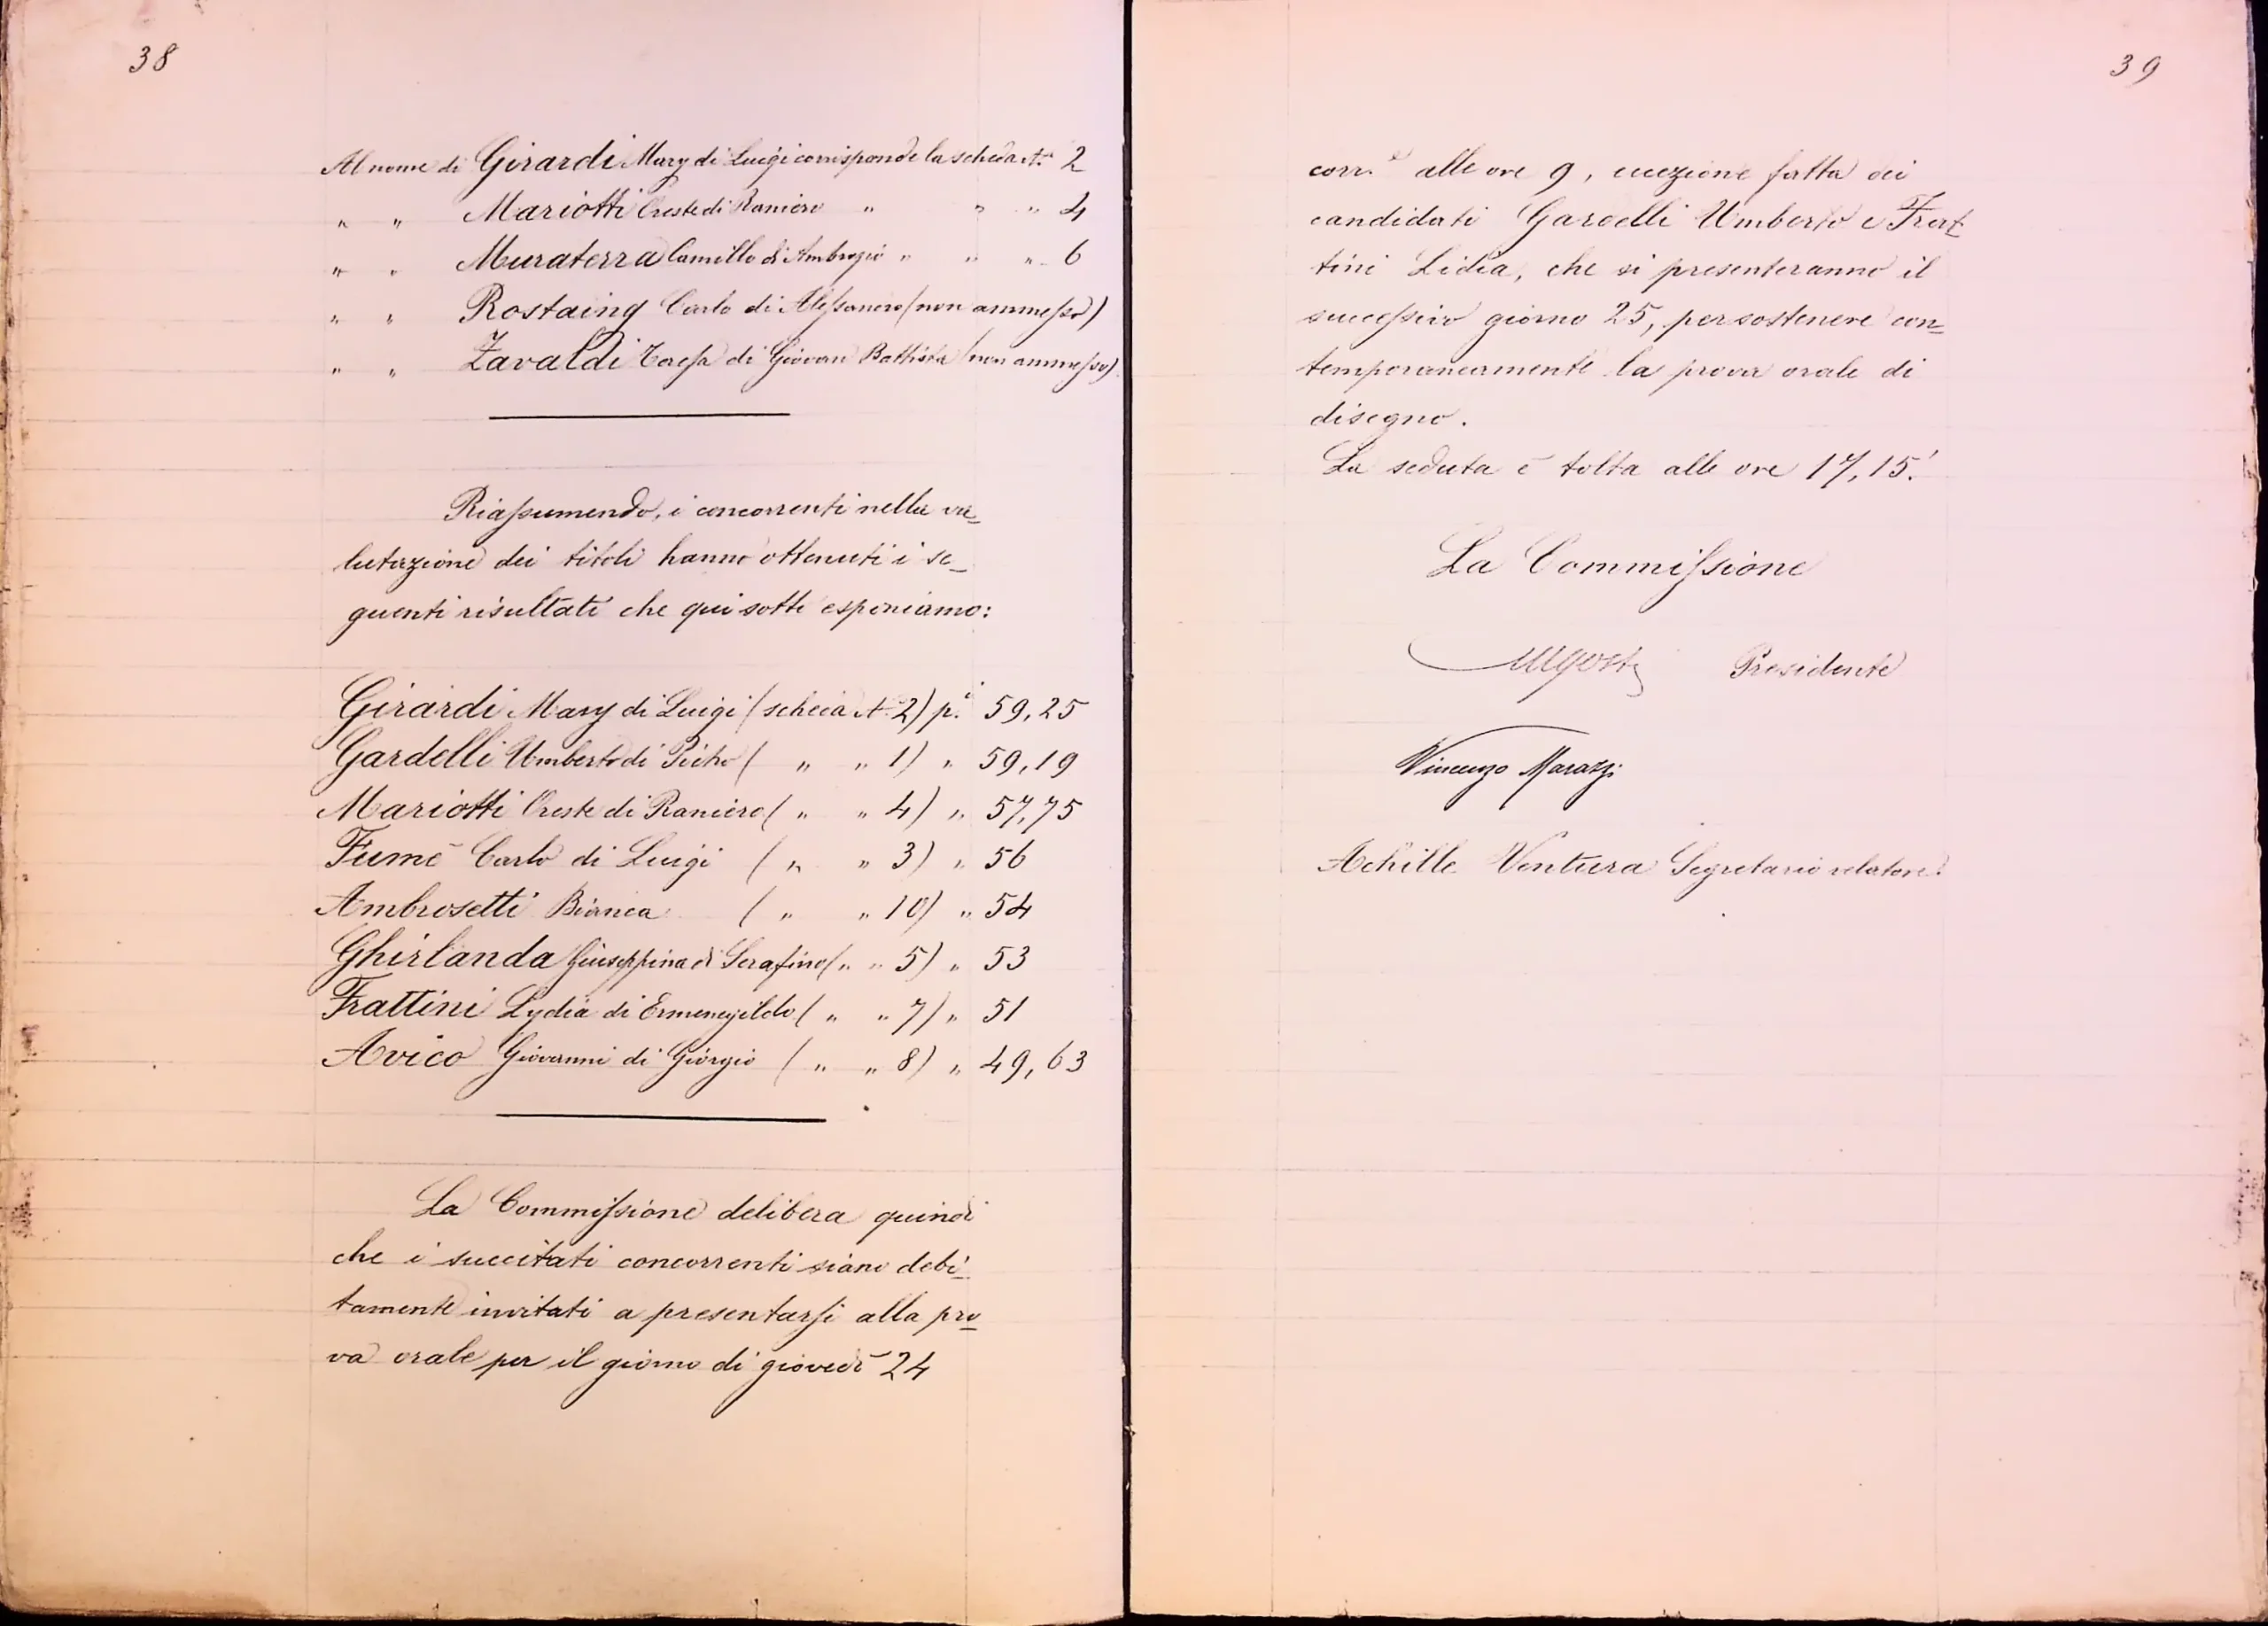 38
Al nome di Girardi Mary di Luigi corrisponde la scheda N.º 2
„ „ Mariotti Oreste di Raniero „ „ „ 4
„ „ Muraterra Camillo di Ambrogio „ „ „ 6
„ „ Rostaing Carlo di Alessandro (non ammesso)
„ „ Zavaldi Teresa di Giovan Battista (non ammesso)
Riassumendo, i concorrenti nella va_
lutazione dei titoli hanno ottenuti i se_
guenti risultati che qui sotto esponiamo:
Girardi Mary di Luigi (scheda N. 2) p.i 59,25
Gardelli Umberto di Pietro ( „ „ 1) „ 59,19
Mariotti Oreste di Raniero ( „ „ 4) „ 57,75
Fumè Carlo di Luigi ( „ „ 3) „ 56
Ambrosetti Bianca ( „ „ 10) „ 54
Ghirlanda Giuseppina di Serafino ( „ „ 5) „ 53
Frattini Lydia di Ermenegildo ( „ „ 7) „ 51
Avico Giovanni di Giorgio ( „ „ 8) „ 49,63
La Commissione delibera quindi
che i succitati concorrenti siano debi_
tamente invitati a presentarsi alla pro_
va orale per il giorno di giovedì 24
39
corr.e alle ore 9, eccezione fatta dei
candidati Gardelli Umberto e Frat_
tini Lidia, che si presenteranno il
successivo giorno 25, per sostenere con_
temporaneamente la prova orale di
disegno.
La seduta è tolta alle ore 17,15'.
La Commissione
Presidente
Vincenzo Marazzi
Achille Ventura Segretario relatore.